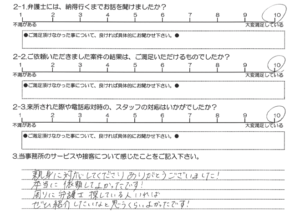 2-1.弁護士には、納得行くまでお話を聞けましたか?
1 2 3 4 5 6 7 8 9 10
不満がある 大変満足している
●ご満足頂けなかった事について、宜ければ具体的にお聞かせ下さい。●
2-2.ご依頼いただきました案件の結果は、ご満足いただけるものでしたか?
1 2 3 4 5 6 7 8 9 10
不満がある 大変満足している
●ご満足頂けなかった事について、宜ければ具体的にお聞かせ下さい。●
2-3.来所された際や電話応対時の、スタッフの対応はいかがでしたか?
1 2 3 4 5 6 7 8 9 10
不満がある 大変満足している
●ご満足頂けなかった事について、宜ければ具体的にお聞かせ下さい。●
3.当事務所のサービスや接客について感じたことをご記入下さい。
親身に対応してくださりありがとうございました!
本当に依頼してよかったです!
周りに弁護士探している人いれば
ぜひ紹介したいなと思うくらいよかったです!